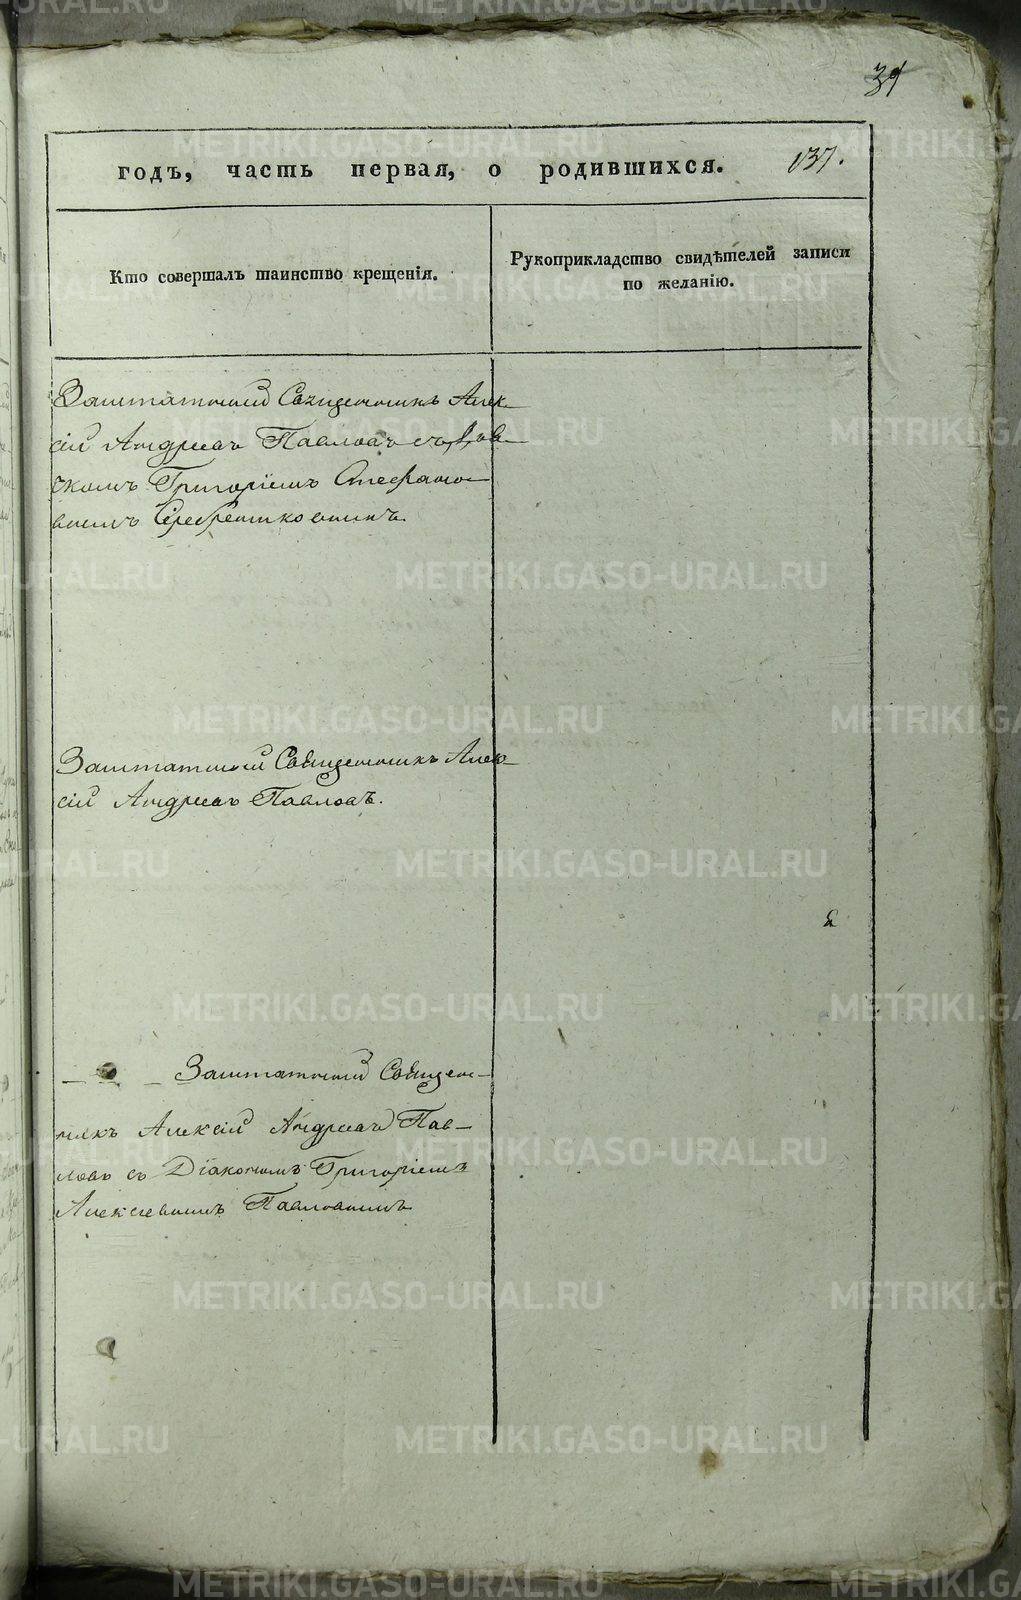 31
годъ, часть первая, о родившихся. 137.
Кто совершалъ таинство крещенія.
Рукоприкладство свидѣтелей записи
по желанію.
Заштатный Священникъ Алек-
сій Андреевъ Павловъ съ
Григоріемъ Стефано-
вымъ Серебренниковымъ.
Заштатный Священникъ Алек-
сій Андреевъ Павловъ.
Заштатный Священ-
никъ Алексій Андреевъ Пав-
ловъ съ Діакономъ Григоріемъ
Алексіевымъ Павловымъ
METRIKI.GASO-URAL.RU